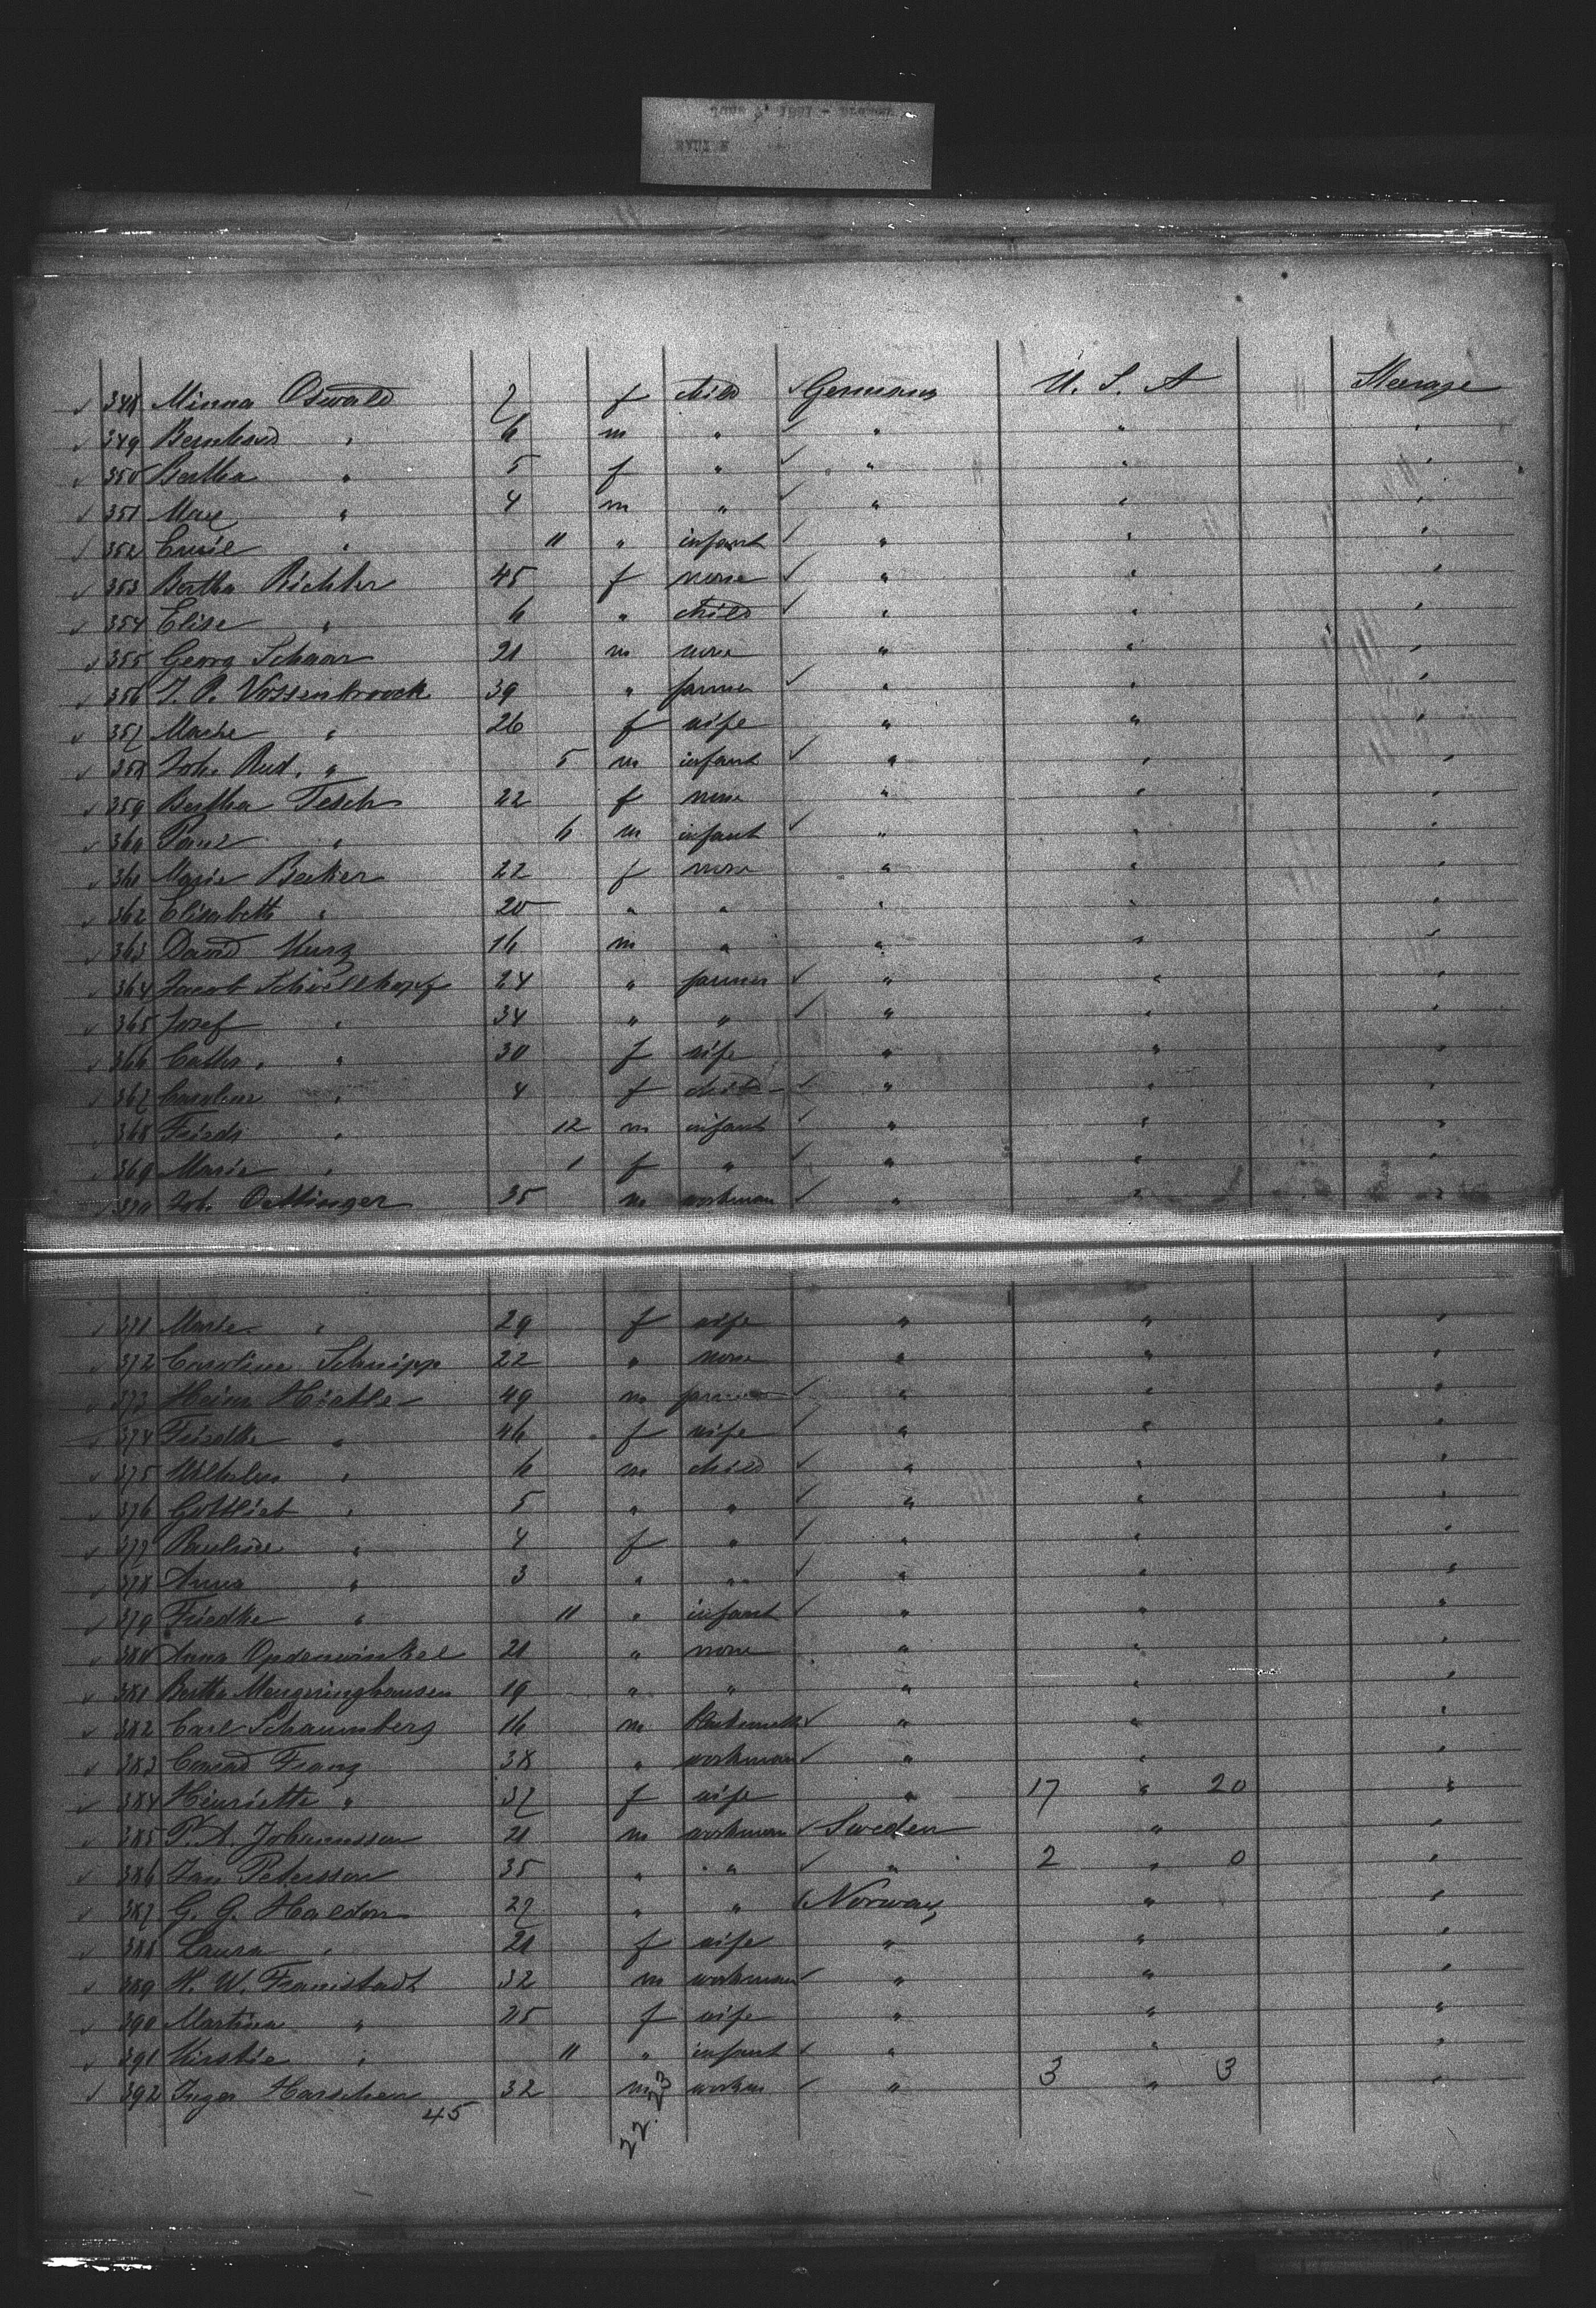 348 Minna Oswald 7 f child Germany U. S. A Steerage
349 Bernhard " 6 m " " " "
350 Bertha " 5 f " " " "
351 Max " 4 m " " " "
352 Emil " 11 " infant " " "
353 Bertha Richter 45 f none " " "
354 Elise " 6 " child " " "
355 Georg Schaar 21 m none " " "
356 J. P. Vossenbroock 39 " farmer " " "
357 " 26 f wife " " "
358 Joh. Rud. " 5 m infant " " "
359 Bertha Tesch 22 f none " " "
360 Paul " 6 m infant " " "
361 Marie Becker 22 f none " " "
362 Elisabeth " 20 " " " " "
363 David Kurz 16 m " " " "
364 Jacob Schoellkopf 24 " farmer " " "
365 Josef " 34 " " " " "
366 Cath. " 30 f wife " " "
367 Caroline " 4 f child " " "
368 Friedr " 12 m infant " " "
369 Marie " 1 f " " " "
370 Joh. Oettinger 35 m workman " " "
371 Marie " 29 f wife " " "
372 Caroline Schnipp 22 " none " " "
373 Heinr 49 m farmer " " "
374 Friedke " 46 f wife " " "
375 Wilhelm " 6 m child " " "
376 Gottlieb " 5 " " " " "
377 Pauline " 4 f " " " "
378 Anna " 3 " " " " "
379 Friedke " 11 " infant " " "
380 Anna Opdenwinkel 21 " none " " "
381 Bertha Mengeringhausen 19 " " " " "
382 Carl Schaumberg 16 m " " "
383 Conrad Franz 38 " workman " " "
384 Henriette " 37 f wife " 17 " 20 "
385 P. A. Johannsson 21 m workman Sweden " "
386 Jan Petersson 35 " " " 2 " 0 "
387 G. G. Haldon 27 " " Norway " "
388 Laura " 21 f wife " " "
389 H. W. Framstadt 32 m workman " " "
390 Martina " 25 f wife " " "
391 Kirstie " 11 " infant " " "
392 Inger Harschen 32 m workm " 3 " 3 "
45 22. 23